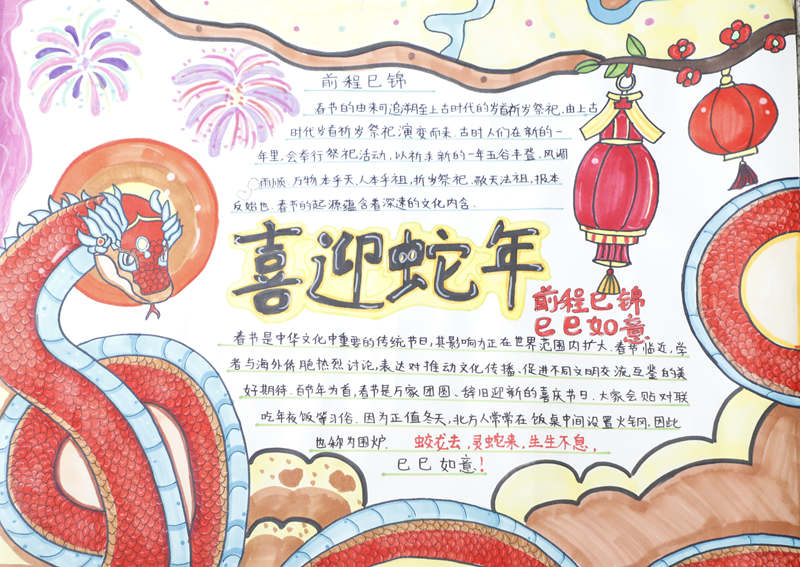 前程巳锦
春节的由来可追溯至上古时代的岁首祈岁祭祀,由上古
时代岁首祈岁祭祀演变而来.古时人们在新的一
年里,会举行祭祀活动,以祈求新的一年五谷丰登.风调
雨顺.万物本乎天,人本乎祖,祈岁祭祀.敬天法祖,报本
反始也.春节的起源蕴含着深邃的文化内含.
喜迎蛇年
前程巳锦
巳巳如意
春节是中华文化中重要的传统节日,其影响力正在世界范围内扩大.春节临近,学
者与海外侨胞热烈讨论,表达对推动文化传播、促进不同文明交流互鉴的美
好期待.百节年为首,春节是万家团圆、辞旧迎新的喜庆节日.大家会贴对联
吃年夜饭等习俗.因为正值冬天,北方人常常在饭桌中间设置火锅,因此
也称为围炉. 蛟龙去,灵蛇来,生生不息,
巳巳如意!